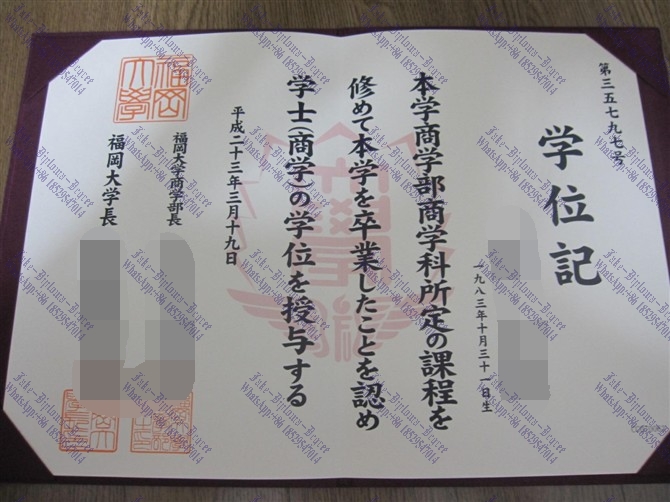 第三五七九七号
学位記
一九八三年十月三十一日生
本学商学部商学科所定の課程を
修めて本学を卒業したことを認め
学士（商学）の学位を授与する
平成二十三年三月十九日
福岡大学商学部長
福岡大学長
福岡
大学
Fake-Diploma-Degree
WhatsApp:+86 18529547014